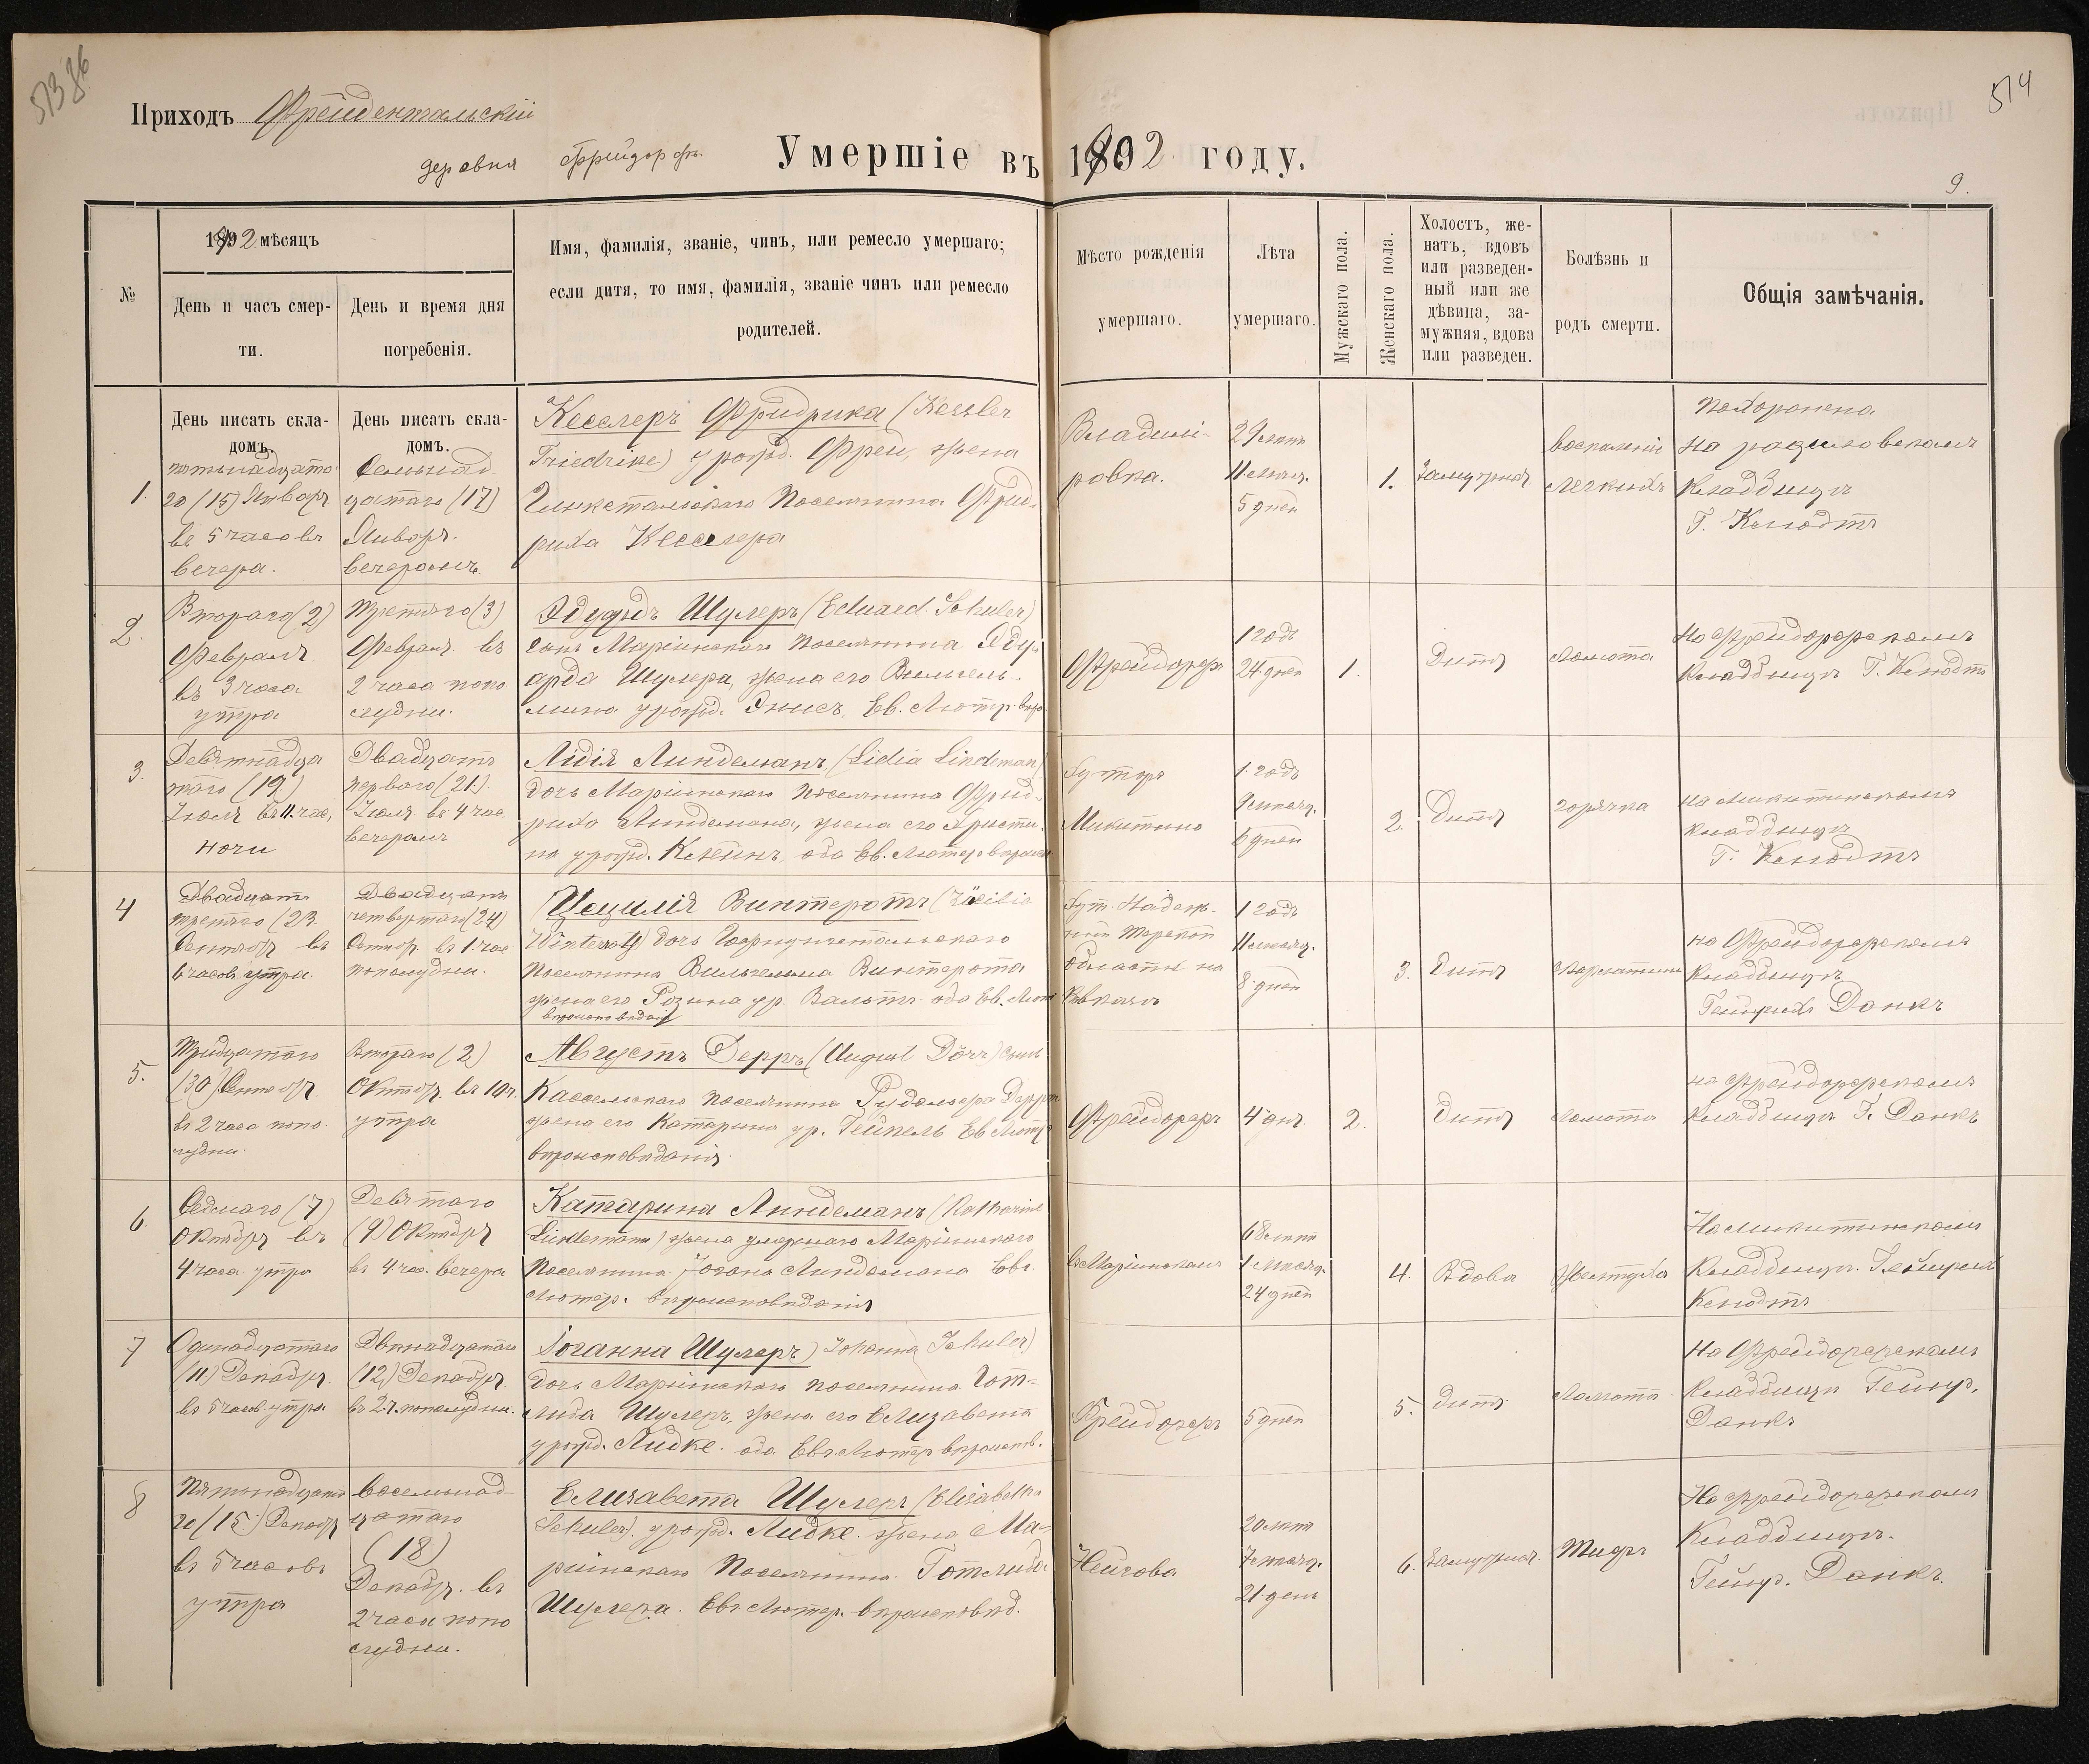 513 86
514
Приходъ Фрейдентальскій
деревня Фрейдорфъ.
Умершіе въ 1902 году.
9.
№
1892 мѣсяцъ
День и часъ смер-
ти.
День и время дня
погребенія.
Имя, фамилія, званіе, чинъ, или ремесло умершаго;
если дитя, то имя, фамилія, званіе чинъ или ремесло
родителей.
Мѣсто рожденія
умершаго.
Лѣта
умершаго.
Мужскаго пола.
Женскаго пола.
Холостъ, же-
натъ, вдовъ
или разведен-
ный или же
дѣвица, за-
мужняя, вдова
или разведен.
Болѣзнь и
родъ смерти.
Общія замѣчанія.
День писать скла-
домъ.
День писать скла-
домъ.
1.
пятьнадцата
го (15) Январ
въ 5 часовъ
вечера.
Семьнад
цатаго (17)
Январ.
вечеромъ
Кесслеръ Фридрика (Kessler
Friedrike) урожд. Фрей, жена
Глюкстальскаго поселянина Фрид-
риха Кесслера
Владими-
ровка.
29 лѣтъ
11 мѣсяц.
5 дней
1.
Замужняя
воспаленіе
легкихъ
похоронена
на
кладбищѣ
Г. Кнодтъ
2.
Втораго (2)
Февраля
въ 3 часа
утра
третьяго (3)
Февраля въ
2 часа попо
лудни.
Эдуардъ Шулеръ (Eduard Schuler)
сынъ Маріинскаго поселянина Эду-
арда Шулера, жена его Вильгель-
мина урожд. Энисъ, Ев. Лютр. вѣро
Фрейдорфъ
1 годъ
24 дней
1.
Дитя
ломота
На Фрейдорфскомъ
Кладбищѣ Г. Кнодтъ
3.
Девятнадца
таго (19)
Іюля въ 11. час,
ночи
Двадцать
перваго (21.)
Іюля въ 4 час
вечеромъ
Лидія Линдеманъ (Lidia Lindeman)
дочь Маріинскаго поселянина Фрид-
риха Линдемана, жена его Христи-
на урожд. Клейнъ, оба Ев. Лютер вѣроисп
Хуторъ
Микитино
1. годъ
9 мѣсяц.
6 дней
2.
Дитя
горячка
на Микитинскомъ
кладбищѣ
Г. Кнодтъ
4
Двадцать
третяго (23.
Сентябр въ
6 часовъ утра.
Двадцать
четвертаго (24)
Сентяр. въ 1. час.
пополудни.
Цецилія Винтеротъ (Zäcilia
Winterotz) дочь
поселянина Вильгельма Винтерота
жена его Розина ур. Вальтъ оба Ев. Лют
вѣроисповѣданія
Хут. Надеж-
Терской
области на
Кавказѣ
1 годъ
11 мѣсяц.
8 дней
3.
Дитя
скарлатина
на Фрейдорфскомъ
кладбищѣ
Гейнрихъ Данкъ
5.
тридцатаго
(30) Сентябр
въ 2 часа попо-
лудни
Втораго (2)
Октябр. въ 10 ч.
утра
Августъ Дерръ (August Dörr) сынъ
Кассельскаго поселянина Рудольфа Дерръ
жена его Катарина ур. Гейнель Ев Лютр
вѣроисповѣданія
Фрейдорфъ
4 дня
2.
Дитя
ломота
на Фрейдорфскомъ
кладбищѣ Г. Данкъ
6
Седмаго (7)
Октября въ
4 часа утра
Девятаго
(9) Октября
въ 4 час. вечера
Катарина Линдеманъ (Katharina
Lindemann) жена умершаго Маріинскаго
поселянина Іогана Линдемана Евг.
Лютер. вѣроисповѣданія
въ Маріинскомъ
68 лѣтъ
1 мѣсяц.
24 дней
4
Вдова
На Микитинскомъ
Кладбищѣ. Гейнрих
Кнодтъ
7
Одинадцатаго
(11) Декабр.
въ 5 часов. утра
Двѣнадцатаго
(12) Декабр.
въ 2 ч. пополудни.
Іоганна Шулеръ) Johanna Schuler)
дочь Маріинскаго поселянина Гот-
либа Шулеръ, жена его Елизавета
урожд. Лидке. оба Евг. Лютер вѣроиспов.
Фрейдорфъ
5 дней
5.
дитя
Ломота
На Фрейдорфскомъ
Кладбищѣ Гейнр.
Данкъ
8
Пятьнадцата
го (15.) Декабр
въ 5 часовъ
утра
восемьнад-
цатаго
(18)
Декабр. въ
2 часа попо
лудни.
Елизавета Шулеръ (Elisabetha
Schuler). урожд. Лидке. жена Ма-
ріинскаго Поселянина Готлиба
Шулера. Евг Лютер. вѣроисповѣд.
Нейгова
20 лѣтъ
7 мѣсяц.
21 день
6.
Замужняя.
Тифъ
На Фрейдорфскомъ
Кладбищѣ.
Гейнр. Данкъ.